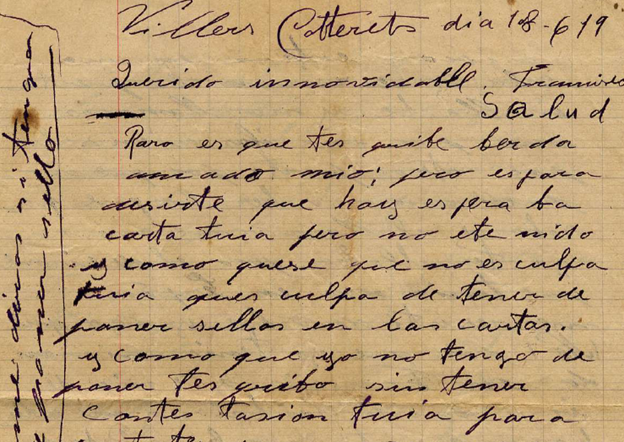 Villers Cotterets dia 18-6 19
Querido innovidable Francisco
Salud
Raro es que tes quibe berda
amado mio; pero es para
desirte que hai espera ba
carta tuia pero no ete nido
y como quese que no es culpa
tuia ques culpa de tener de
poner sellos en las cartas.
y como que yo no tengo de
poner tes quibo sin tener
contes tasion tuia para
me diras si tengo
poner sello